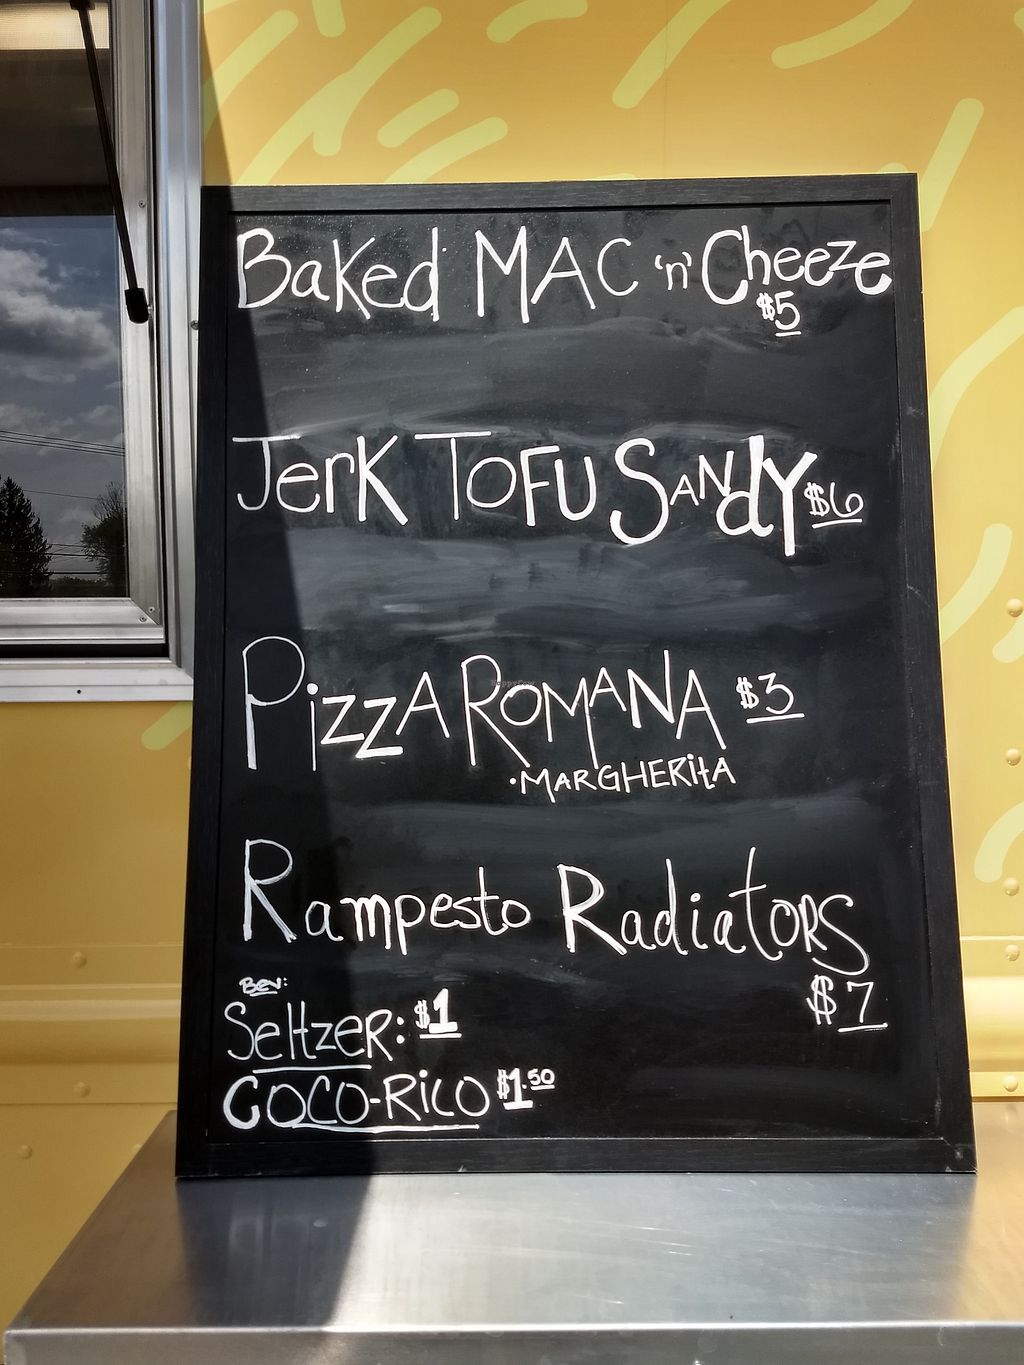 Baked MAC 'n' Cheeze
$5
Jerk TOFU SANdY $6
PizzA ROMANA $3
• MARGHERitA
Rampesto RadiatORS
$7
Bev:
SeltzeR: $1
COCO-RiCO $1.50
HappyCow